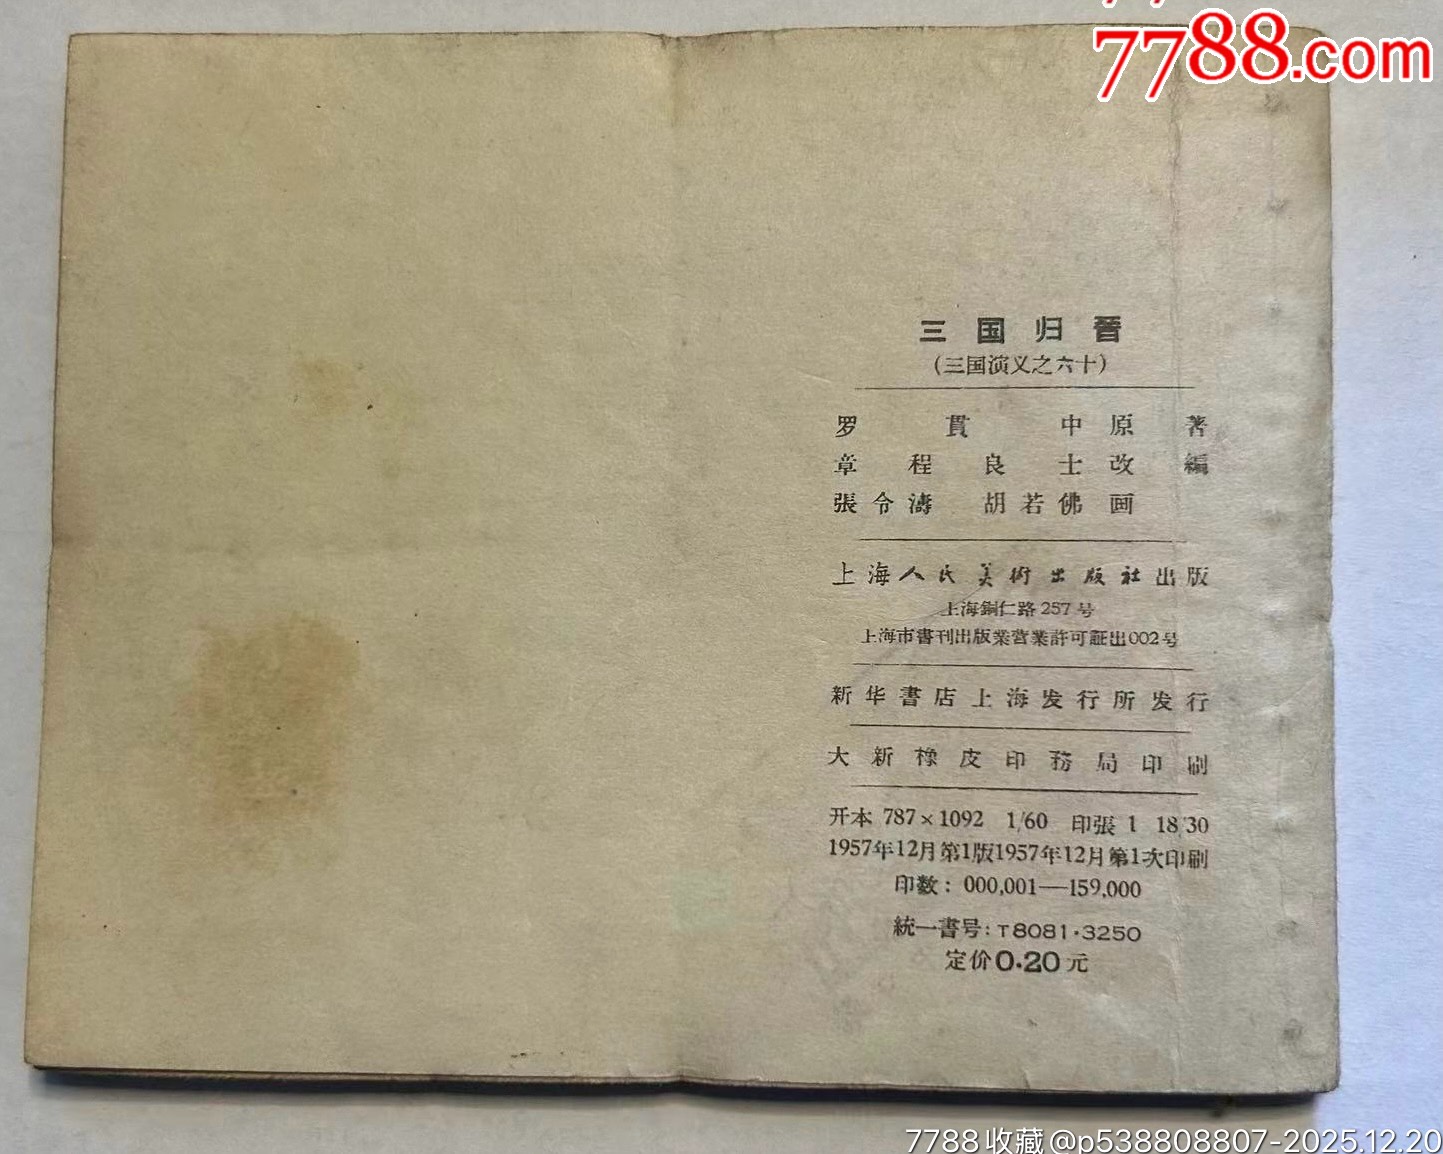 7788.com
三国归晉
(三国演义之六十)
罗貫中原著
章程良士改編
張令濤 胡若佛画
上海人民美術出版社出版
上海銅仁路257号
上海市書刊出版業营業許可証出002号
新华書店上海发行所发行
大新橡皮印務局印刷
开本 787×1092 1/60 印張 1 18/30
1957年12月第1版1957年12月第1次印刷
印数：000,001—159,000
統一書号：T8081·3250
定价0.20元
7788收藏@p538808807-2025.12.20